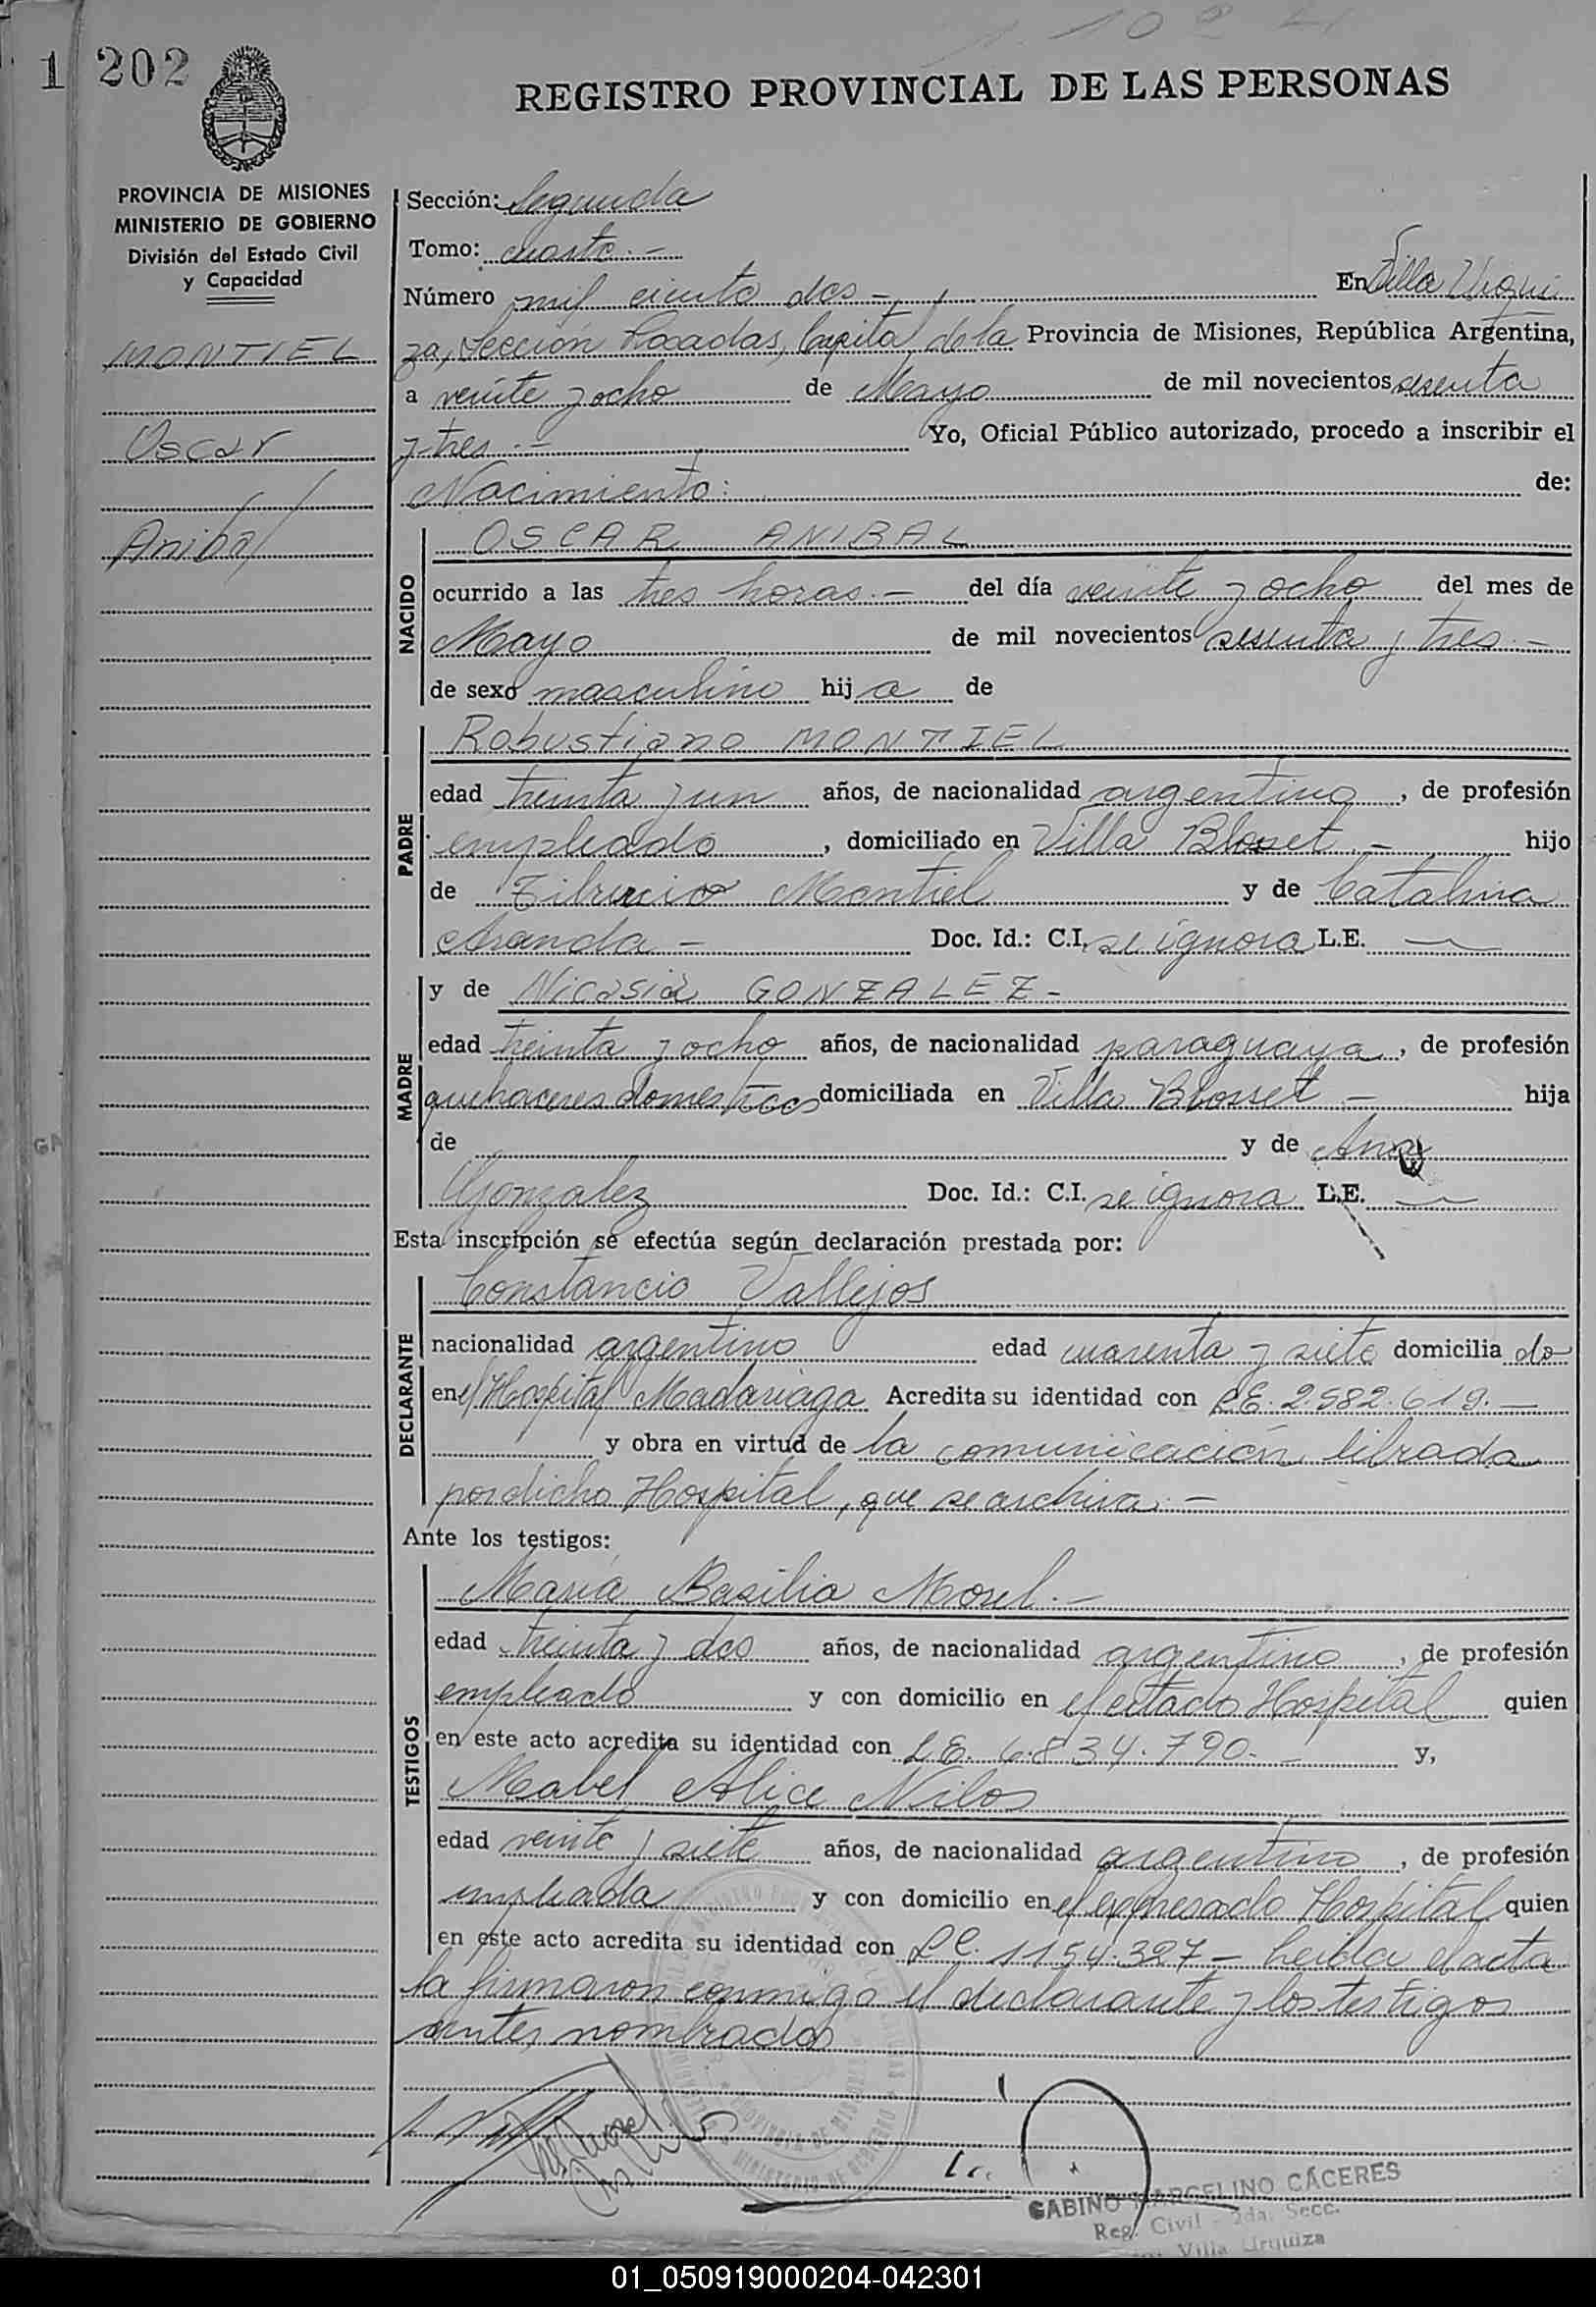 1 202
REGISTRO PROVINCIAL DE LAS PERSONAS
PROVINCIA DE MISIONES
MINISTERIO DE GOBIERNO
División del Estado Civil
y Capacidad
MONTIEL
Oscar
Anibal
Sección: Segunda
Tomo: cuarto.-
Número mil ciento dos - En Villa Urqui
za, Sección Posadas, Capital de la Provincia de Misiones, República Argentina,
a veinte y ocho de Mayo de mil novecientos sesenta
y tres.- Yo, Oficial Público autorizado, procedo a inscribir el
Nacimiento: de:
NACIDO
OSCAR ANIBAL
ocurrido a las tres horas.- del día veinte y ocho del mes de
Mayo de mil novecientos sesenta y tres.-
de sexo masculino hij o de
PADRE
Robustiano MONTIEL
edad treinta y un años, de nacionalidad argentino, de profesión
empleado, domiciliado en Villa Blosset - hijo
de Tiburcio Montiel y de Catalina
Aranda - Doc. Id.: C.I. se ignora L.E. —
MADRE
y de Nicasia GONZALEZ-
edad treinta y ocho años, de nacionalidad paraguaya, de profesión
quehaceres domesticos domiciliada en Villa Blosset - hija
de y de Ana
Gonzalez Doc. Id.: C.I. se ignora L.E. —
Esta inscripción se efectúa según declaración prestada por:
DECLARANTE
Constancio Vallejos
nacionalidad argentino edad cuarenta y siete domicilia do
en el Hospital Madariaga Acredita su identidad con L.E. 2.582.619.-
y obra en virtud de la comunicación librada
por dicho Hospital, que se archiva.-
Ante los testigos:
TESTIGOS
Maria Basilia Morel.-
edad treinta y dos años, de nacionalidad argentino, de profesión
empleado y con domicilio en el citado Hospital quien
en este acto acredita su identidad con L.E. 6.834.790.- y,
Mabel Alice Nilos
edad veinte y siete años, de nacionalidad argentino, de profesión
empleada y con domicilio en el expresado Hospital quien
en este acto acredita su identidad con L.C. 1154.327- Leida el acta
la firmaron conmigo el declarante y los testigos
antes nombrados
GABINO MARCELINO CÁCERES
Reg. Civil - 2da. Secc.
Villa Urquiza
01_050919000204-042301